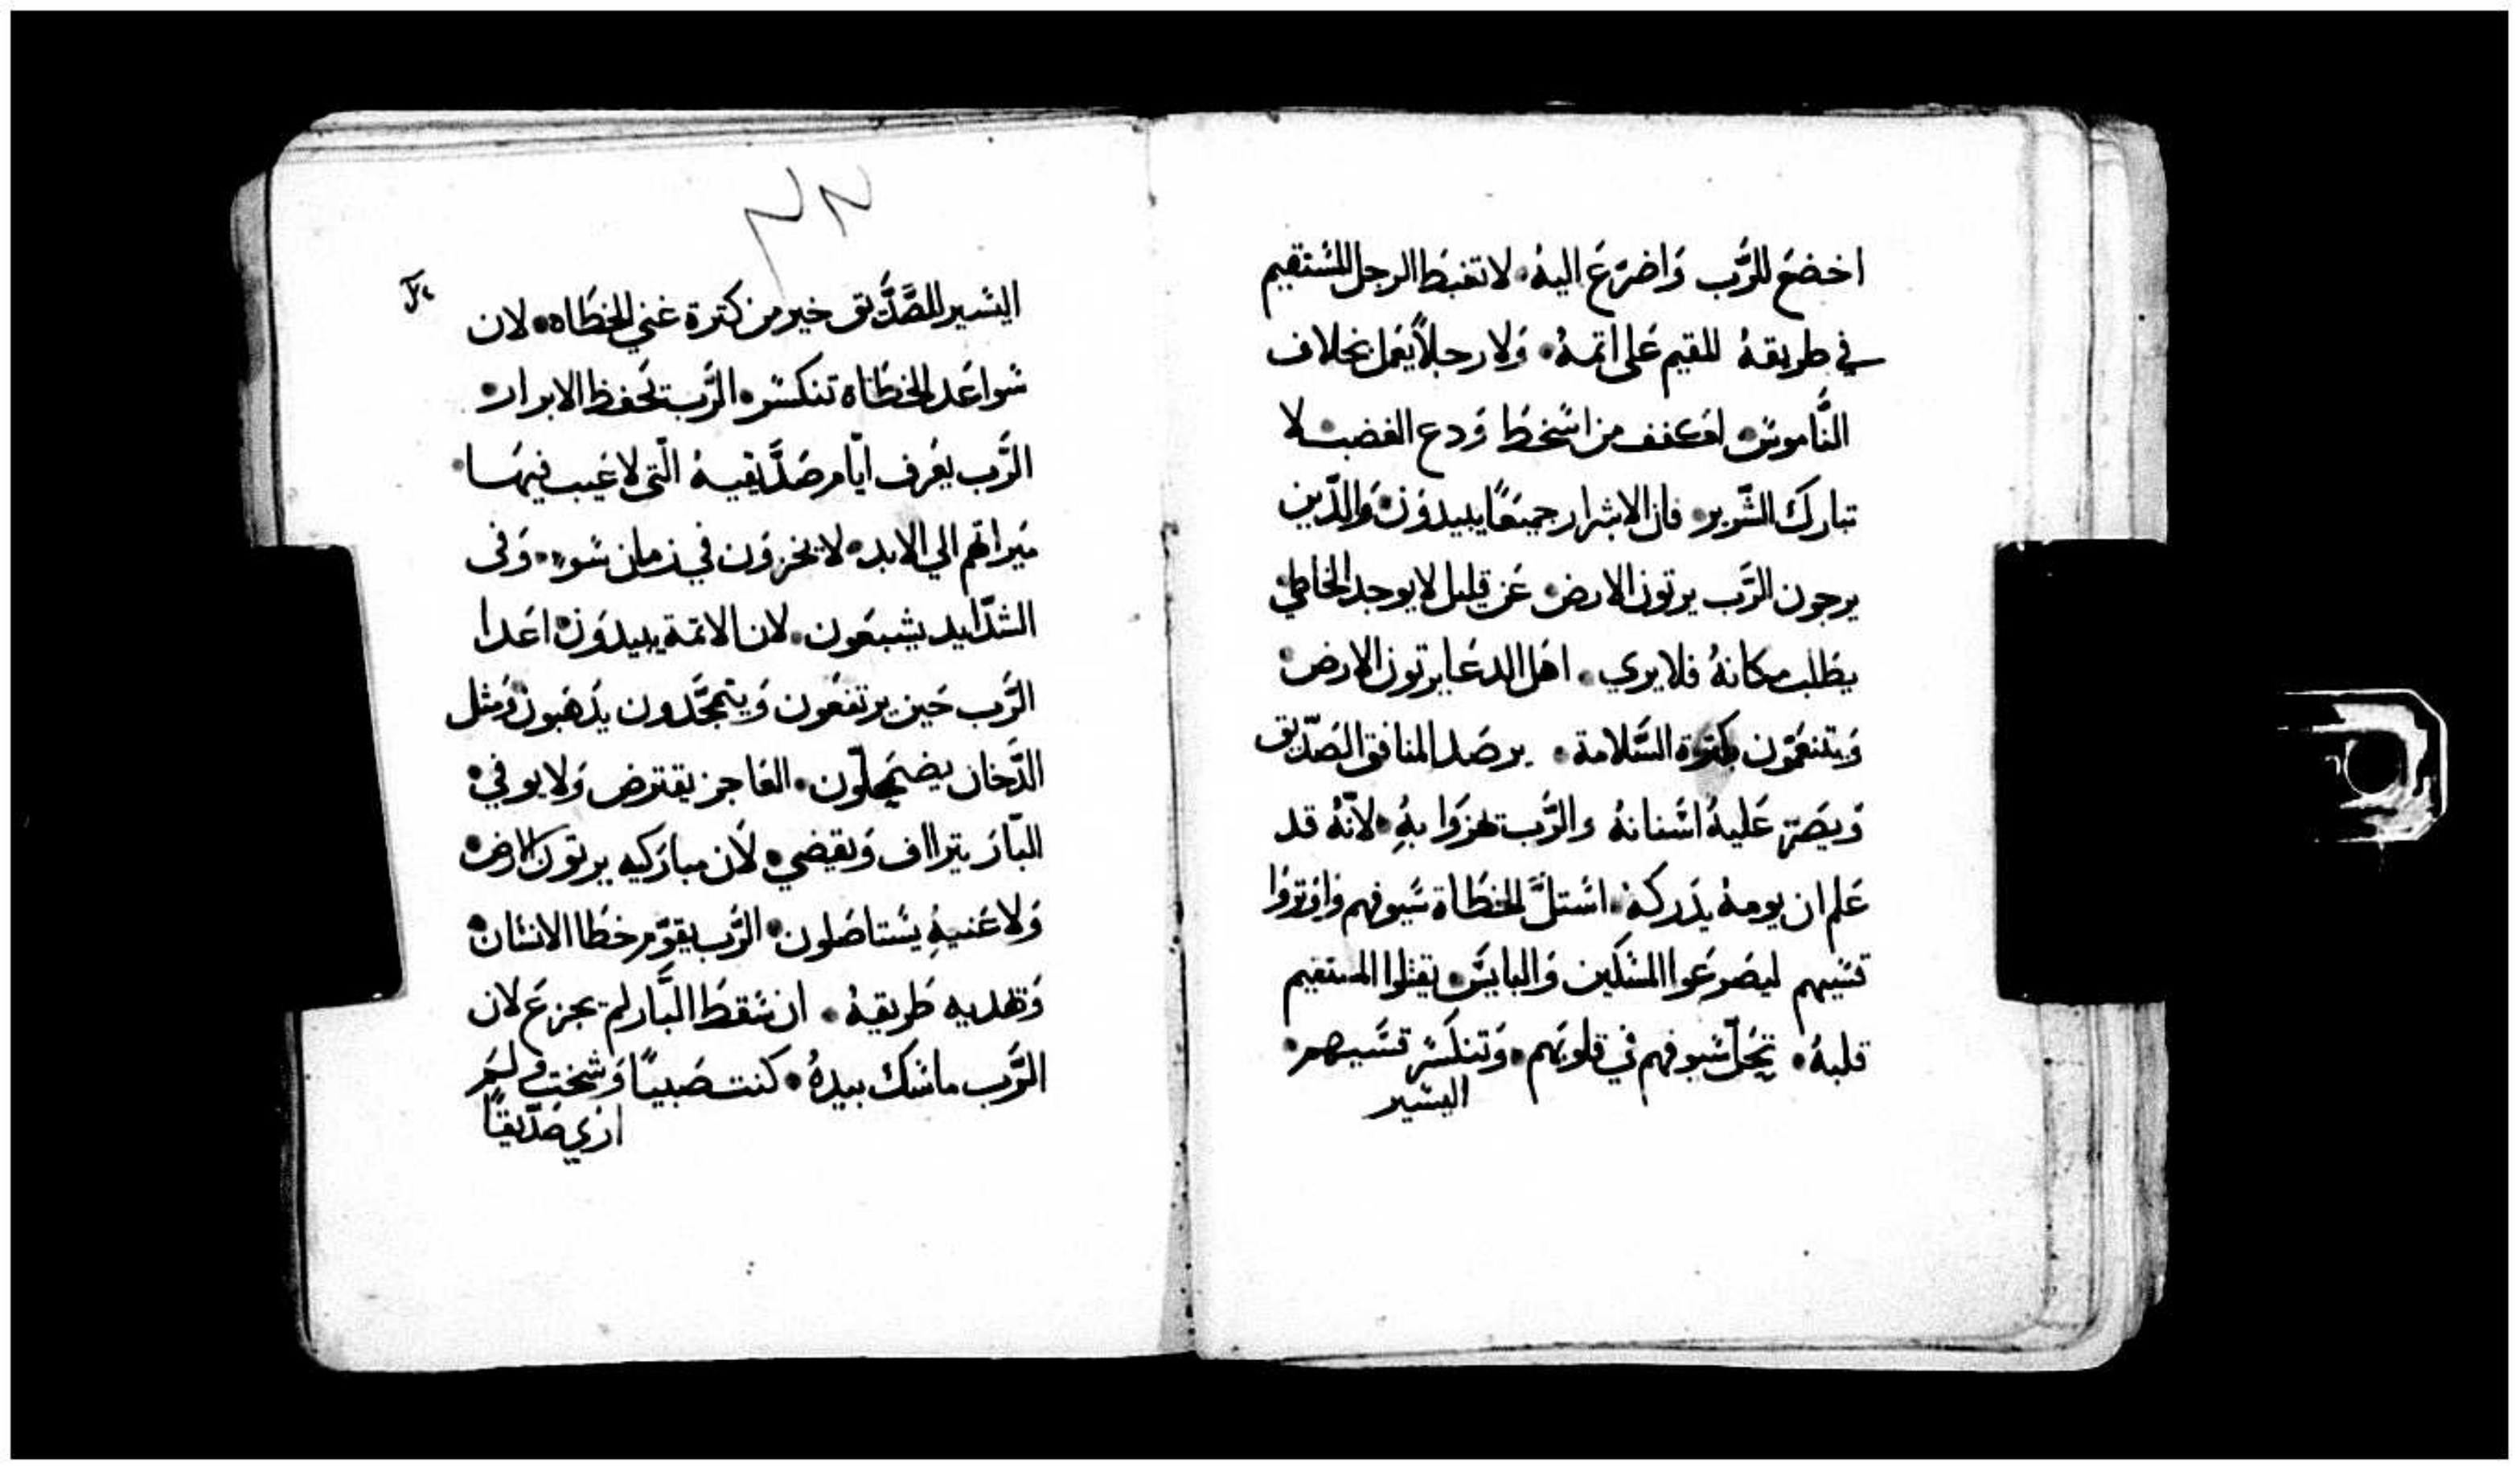 اخضع للرَّب وَاضرَع اليهُ لا تغبط الرجل المستقيم
في طريقهُ المقيم عَلى اثمهُ وَلا رجلاً يعَمل بخلاف
النَّاموسْ اكفف من اسْخط وَدع الغضب لا
تبارك الشّرير فان الاشرار جميعًا يبيدوُن وَالذّين
يرجون الرَّب يرثون الارض عَن قليل لا يوجد الخاطي
يطَلب مكانهُ فلا يري اهَل الدعَا يرثون الارض
وَيتنعَمّون بكثرة السَّلامة يرصَد المنافق الصَدّيق
وَيصَرّ عَليهُ اسْنانهُ والرَّب تهزوَا بهِ لانّهُ قد
عَلم ان يومهُ يدَركهُ اسْتلَّ الخطَاة سَيوفهم وَاوتروَا
قسَيهم ليصَرعَوا المسْكين وَالبايسَ يقتلوا المستقيم
قلبهُ تحَلّ سْيوفهم في قلوبَهم وَتنكسَر قسَيهم
اليسَير
اليسْير للصَّدَّيق خير من كثرة غني الخطَاه لان
سْواعَد الخطَاة تنكسْر الرَّب يَحفظ الابرار
الرَّب يعَرف ايّام صَدَّيقيهُ الّتى لا عَيب فيهَا
مَيراثهم الي الابد لا يخزوَن في زمان سْوء وَفى
الشدّايد يشبعَون لان الاثمة يبيدوَن اعَدا
الرَّب حَين يرتفعَون وَيتمجَّدون يذَهبون وَمثل
الدَّخان يضمَحِلّون الفاجر يقترض وَلا يوفي
البّار يتراف وَيقضي لأن مباركيه يرثون الارض
وَلاعَنيهِ يسْتاصَلون الرَّب يقوّم خطَا الانسْان
وَتهديه طَريقهُ ان سْقط البَّار لم يجزع لان
الرَّب ماسْك بيدهُ كنت صَبيًا وَشخت ولم
ارَي صَدّيقًا